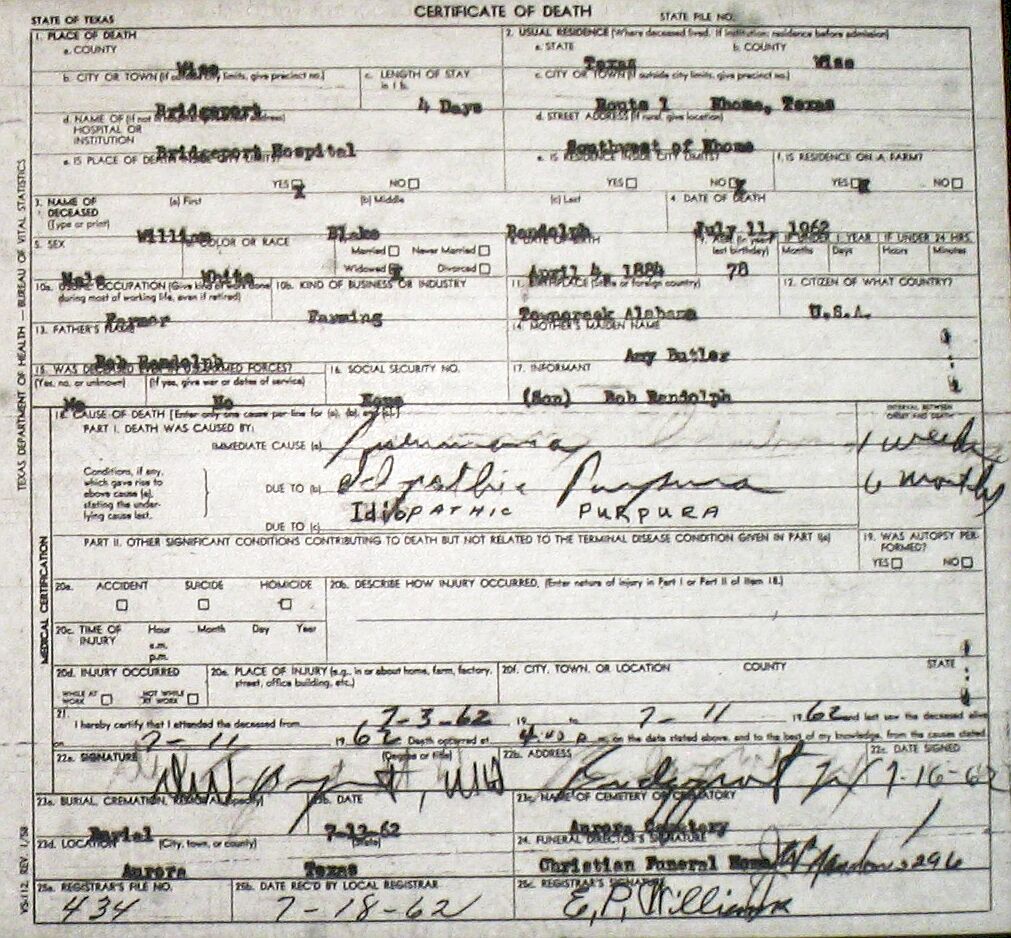 CERTIFICATE OF DEATH
STATE OF TEXAS STATE FILE NO.
1. PLACE OF DEATH 2. USUAL RESIDENCE (Where deceased lived. If institution: residence before admission)
a. COUNTY a. STATE b. COUNTY
Wise Texas Wise
b. CITY OR TOWN (If outside city limits, give precinct no.) c. LENGTH OF STAY in 1b. c. CITY OR TOWN (If outside city limits, give precinct no.)
Bridgeport 4 Days Route 1 Rhome, Texas
d. NAME OF (If not in hospital, give street address) HOSPITAL OR INSTITUTION d. STREET ADDRESS (If rural, give location)
Bridgeport Hospital Southwest of Rhome
e. IS PLACE OF DEATH INSIDE CITY LIMITS? e. IS RESIDENCE INSIDE CITY LIMITS? f. IS RESIDENCE ON A FARM?
YES X NO YES NO X YES X NO
3. NAME OF DECEASED (Type or print) (a) First (b) Middle (c) Last 4. DATE OF DEATH
William Blake Randolph July 11, 1962
5. SEX 6. COLOR OR RACE Married Never Married 8. DATE OF BIRTH 9. AGE (In years last birthday) IF UNDER 1 YEAR IF UNDER 24 HRS.
Widowed X Divorced Months Days Hours Minutes
Male White April 4, 1884 78
10a. USUAL OCCUPATION (Give kind of work done during most of working life, even if retired) 10b. KIND OF BUSINESS OR INDUSTRY 11. BIRTHPLACE (State or foreign country) 12. CITIZEN OF WHAT COUNTRY?
Farmer Farming Towncreek Alabama U.S.A.
13. FATHER'S NAME 14. MOTHER'S MAIDEN NAME
Bob Randolph Amy Butler
15. WAS DECEASED EVER IN U.S. ARMED FORCES? 16. SOCIAL SECURITY NO. 17. INFORMANT
(Yes, no, or unknown) (If yes, give war or dates of service)
No No None (Son) Bob Randolph
18. CAUSE OF DEATH [Enter only one cause per line for (a), (b), and (c).] INTERVAL BETWEEN ONSET AND DEATH
PART I. DEATH WAS CAUSED BY:
IMMEDIATE CAUSE (a) Pneumonia 1 week
Conditions, if any, which gave rise to above cause (a), stating the under-lying cause last.
DUE TO (b) Idiopathic Purpura 6 months
IdiOPATHIC PURPURA
DUE TO (c)
PART II. OTHER SIGNIFICANT CONDITIONS CONTRIBUTING TO DEATH BUT NOT RELATED TO THE TERMINAL DISEASE CONDITION GIVEN IN PART I(a) 19. WAS AUTOPSY PER-FORMED?
YES NO
20a. ACCIDENT SUICIDE HOMICIDE 20b. DESCRIBE HOW INJURY OCCURRED. (Enter nature of injury in Part I or Part II of item 18.)
20c. TIME OF INJURY Hour Month Day Year
a.m.
p.m.
20d. INJURY OCCURRED 20e. PLACE OF INJURY (e.g., in or about home, farm, factory, street, office building, etc.) 20f. CITY, TOWN, OR LOCATION COUNTY STATE
WHILE AT WORK NOT WHILE AT WORK
21.
I hereby certify that I attended the deceased from 7-3-62 19 to 7-11 1962 and last saw the deceased alive
on 7-11 1962 Death occurred at P m. on the date stated above, and to the best of my knowledge, from the causes stated
22a. SIGNATURE (Degree or title) 22b. ADDRESS 22c. DATE SIGNED
MD Bridgeport 7-16-62
23a. BURIAL, CREMATION, REMOVAL (Specify) 23b. DATE 23c. NAME OF CEMETERY OR CREMATORY
Burial 7-12-62 Aurora Cemetery
23d. LOCATION (City, town, or county) (State) 24. FUNERAL DIRECTOR'S SIGNATURE
Aurora Texas Christian Funeral Home
25a. REGISTRAR'S FILE NO. 25b. DATE REC'D BY LOCAL REGISTRAR 25c. REGISTRAR'S SIGNATURE
434 7-18-62 E.P. Williams
TEXAS DEPARTMENT OF HEALTH — BUREAU OF VITAL STATISTICS
MEDICAL CERTIFICATION
VS-112 REV. 1/58